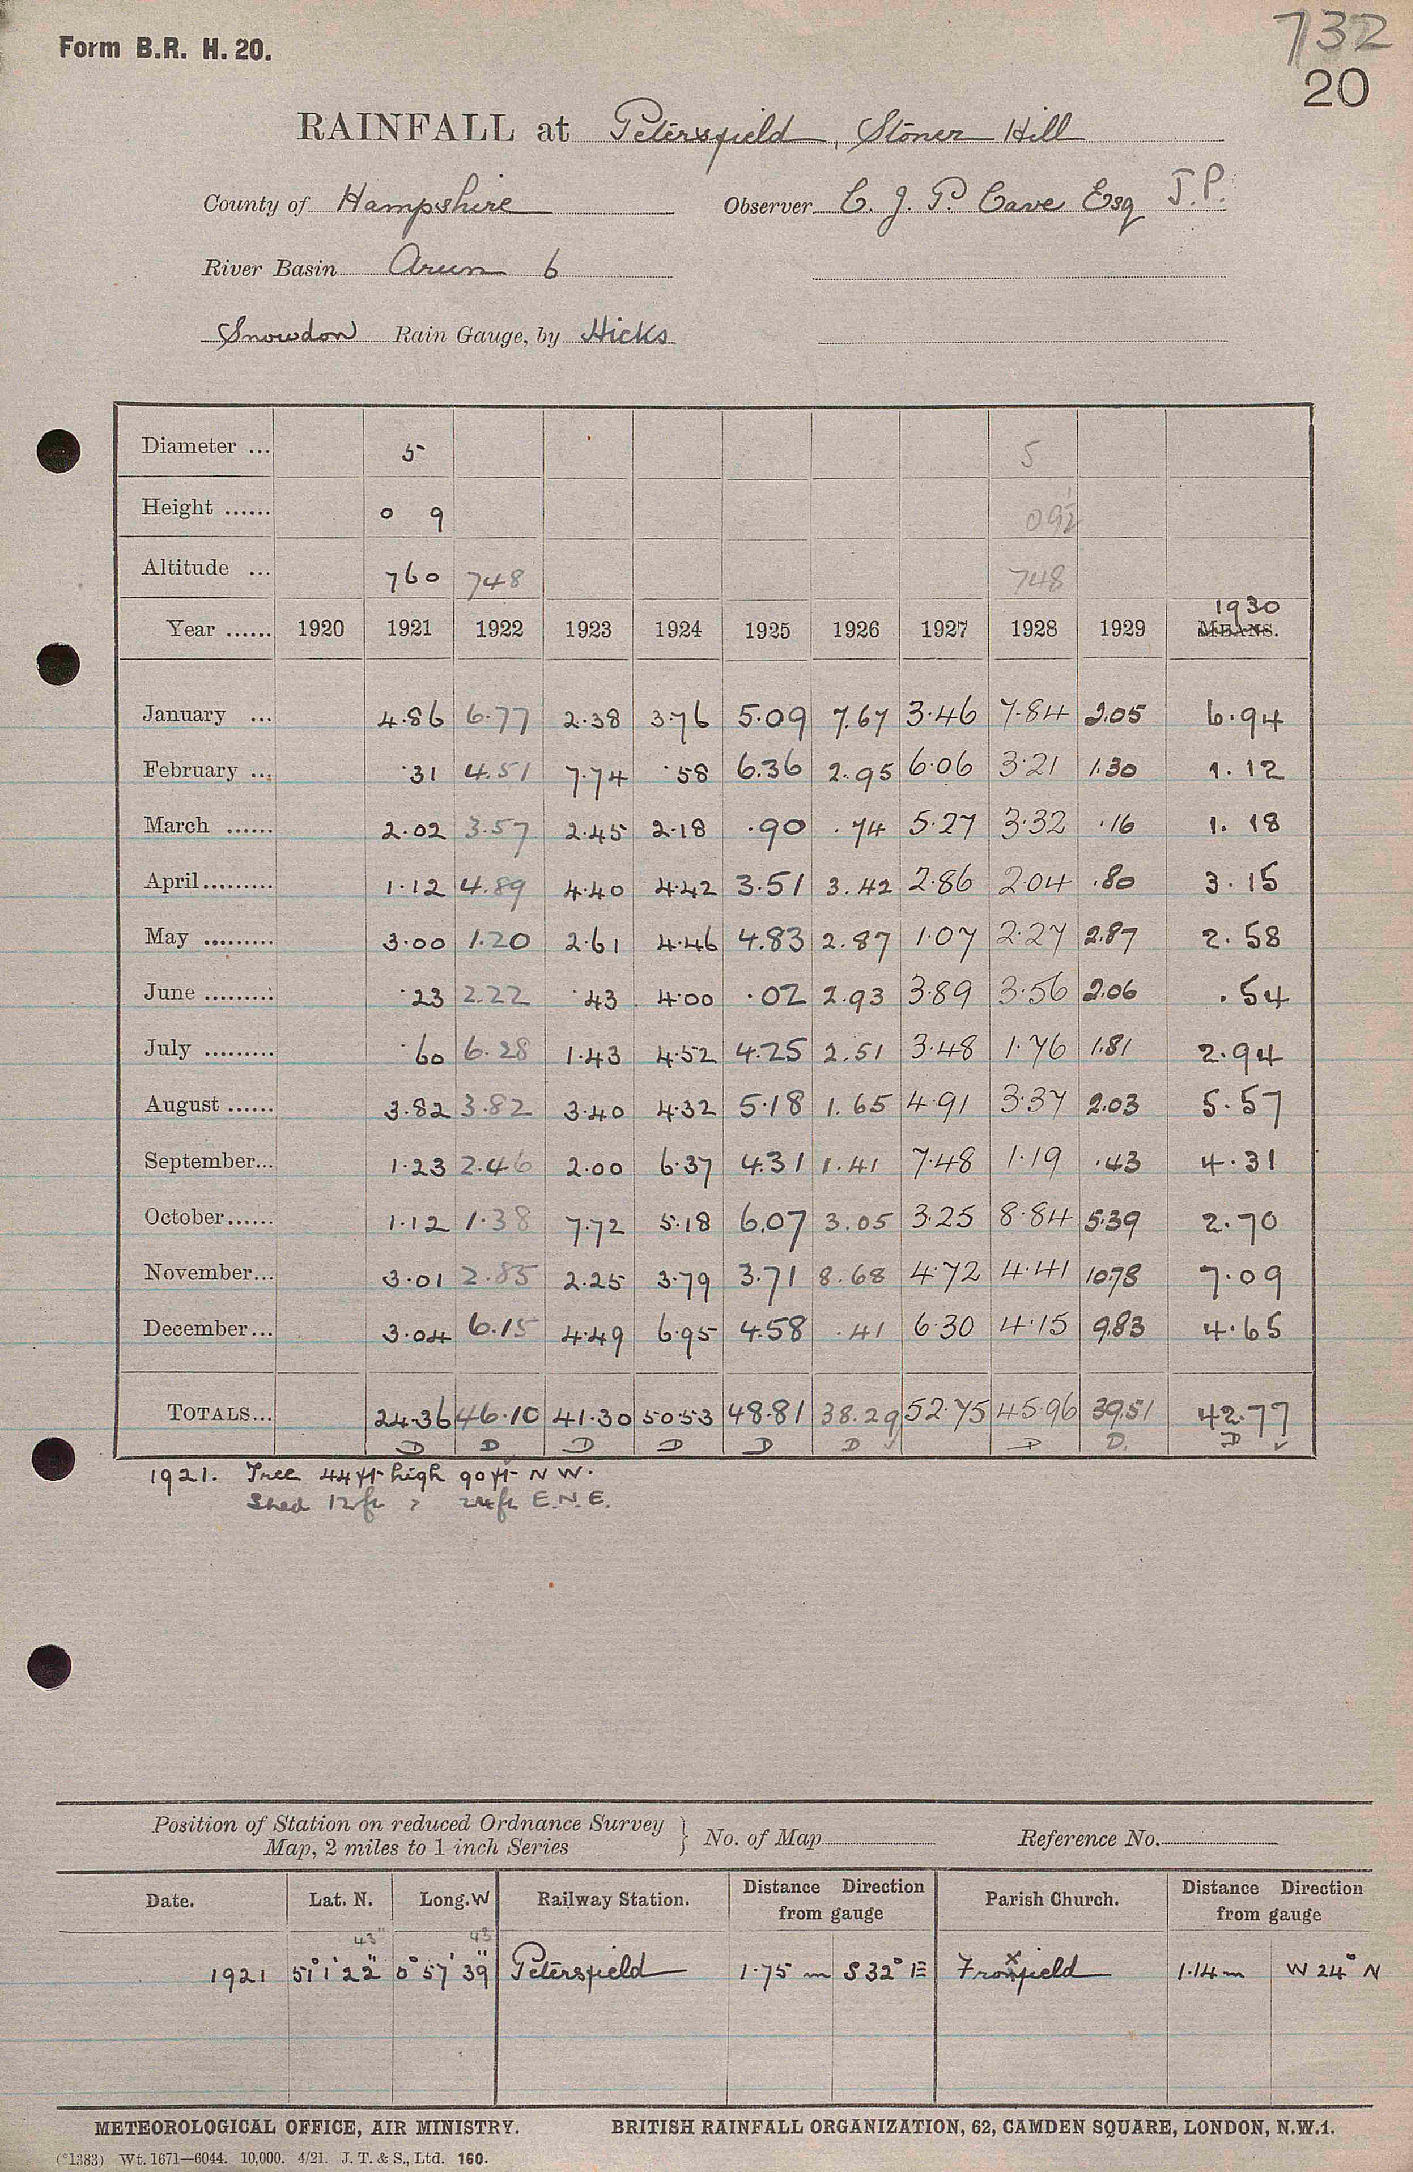 Form B.R. H. 20.
732
20
RAINFALL at Petersfield, Stoner Hill
County of Hampshire Observer C. J. P. Cave Esq J.P.
River Basin Arun 6
Snowdon Rain Gauge, by Hicks
Diameter ... 5 5
Height ...... 0 9 09½
Altitude ... 760 748 748
1930
Year ...... 1920 1921 1922 1923 1924 1925 1926 1927 1928 1929 MEANS.
January ... 4.86 6.77 2.38 3.76 5.09 7.67 3.46 7.84 2.05 6.94
February ... .31 4.51 7.74 .58 6.36 2.95 6.06 3.21 1.30 1.12
March ...... 2.02 3.57 2.45 2.18 .90 .74 5.27 3.32 .16 1.18
April ......... 1.12 4.89 4.40 4.42 3.51 3.42 2.86 2.04 .80 3.15
May ......... 3.00 1.20 2.61 4.46 4.83 2.87 1.07 2.27 2.87 2.58
June ......... .23 2.22 .43 4.00 .02 2.93 3.89 3.56 2.06 .54
July ......... .60 6.28 1.43 4.52 4.25 2.51 3.48 1.76 1.81 2.94
August ...... 3.82 3.82 3.40 4.32 5.18 1.65 4.91 3.37 2.03 5.57
September... 1.23 2.46 2.00 6.37 4.31 1.41 7.48 1.19 .43 4.31
October...... 1.12 1.38 7.72 5.18 6.07 3.05 3.25 8.84 5.39 2.70
November... 3.01 2.85 2.25 3.79 3.71 8.68 4.72 4.41 10.78 7.09
December... 3.04 6.15 4.49 6.95 4.58 .41 6.30 4.15 9.83 4.65
TOTALS... 24.36 46.10 41.30 50.53 48.81 38.29 52.75 45.96 39.51 42.77
D D D D D D D D. D
1921. Tree 44 ft high 90 ft N W.
Shed 12 ft 24 ft E.N.E.
Position of Station on reduced Ordnance Survey
Map, 2 miles to 1 inch Series } No. of Map Reference No.
Date. Lat. N. Long. W Railway Station. Distance Direction from gauge Parish Church. Distance Direction from gauge
43" 43
1921 51° 1' 22" 0° 57' 39" Petersfield 1.75 m S 32° E Froxfield 1.14 m W 24° N
x
METEOROLOGICAL OFFICE, AIR MINISTRY. BRITISH RAINFALL ORGANIZATION, 62, CAMDEN SQUARE, LONDON, N.W.1.
(*1383) Wt. 1671—6044. 10,000. 4/21. J. T. & S., Ltd. 160.